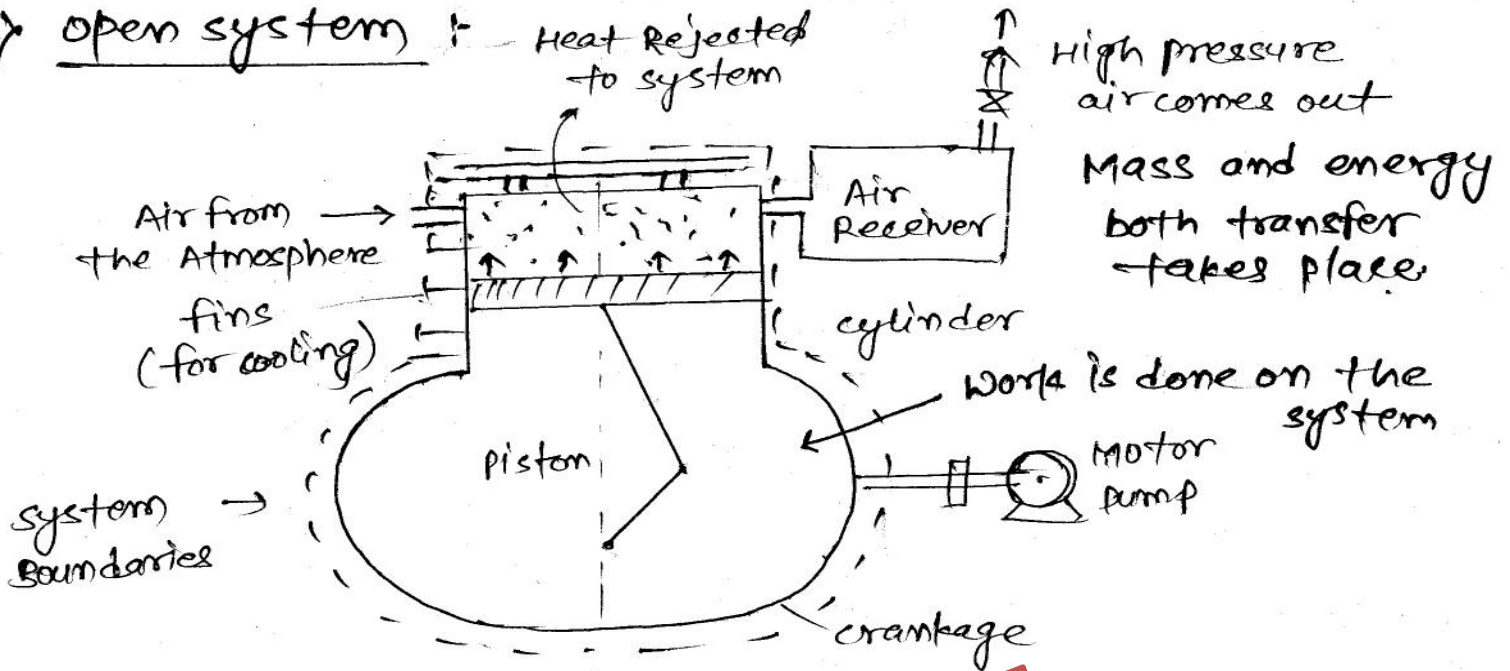 open system :-
Heat Rejected
to system
High pressure
air comes out
Mass and energy
both transfer
takes place
Air from
the Atmosphere
Air
Receiver
fins
(for cooling)
cylinder
work is done on the
system
piston
Motor
pump
system
Boundaries
crankage